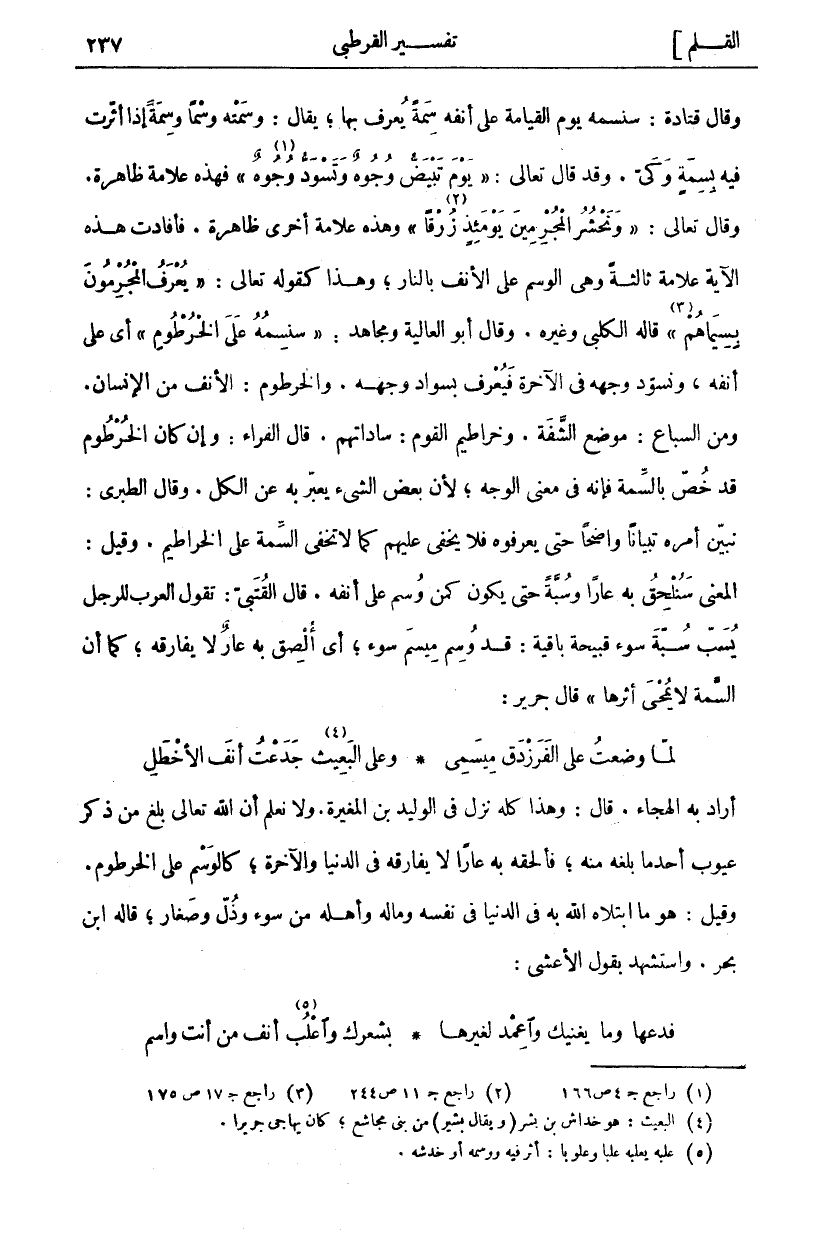 القـــلم ]
تفســـــير القرطبى
٢٣٧
وقال قتادة : سنسمه يوم القيامة على أنفه سِمَةً يُعرف بها ؛ يقال : وسَمْته وسْمًا وسِمَةً إذا أثّرت
فيه بِسِمَةٍ وَكَىّ . وقد قال تعالى : « يَوْمَ تَبْيَضُّ وُجُوهٌ وَتَسْوَدُّ وُجُوهٌ (١) » فهذه علامة ظاهرة .
وقال تعالى : « وَنَحْشُرُ الْمُجْرِمِينَ يَوْمَئِذٍ زُرْقًا (٢) » وهذه علامة أخرى ظاهرة . فأفادت هـــذه
الآية علامة ثالثـــةً وهى الوسم على الأنف بالنار ؛ وهـــذا كقوله تعالى : « يُعْرَفُ الْمُجْرِمُونَ
بِسِيمَاهُمْ (٣) » قاله الكلبى وغيره . وقال أبو العالية ومجاهد : « سنسِمُهُ عَلَى الْخُرْطُومِ » أى على
أنفه ، ونسوّد وجهه فى الآخرة فَيُعْرف بسواد وجهـــه . والخرطوم : الأنف من الإنسان .
ومن السباع : موضع الشَّفَة . وخراطيم القوم : ساداتهم . قال الفراء : وإن كان الخُرْطُوم
قد خُصّ بالسِّمة فإنه فى معنى الوجه ؛ لأن بعض الشىء يعبّر به عن الكل . وقال الطبرى :
نبيّن أمره تبيانًا واضحًا حتى يعرفوه فلا يخفى عليهم كما لا تخفى السِّمة على الخراطيم . وقيل :
المعنى سَنُلْحِقُ به عارًا وسُبَّةً حتى يكون كمن وُسم على أنفه . قال القُتَبىّ : تقول العرب للرجل
يُسَبّ سُـــبّةَ سوء قبيحة باقية : قـــد وُسِم مِيسَم سوء ؛ أى أُلْصِق به عارٌ لا يفارقه ؛ كما أن
السِّمة لا يُمْحَى أثرها » قال جرير :
لمّـا وضعتُ على الفَرَزْدَق مِيسَمِى * وعلى البَعِيث (٤) جَدَعْتُ أنفَ الأخْطَلِ
أراد به الهجاء . قال : وهذا كله نزل فى الوليد بن المغيرة . ولا نعلم أن الله تعالى بلغ من ذكر
عيوب أحد ما بلغه منه ؛ فألحقه به عارًا لا يفارقه فى الدنيا والآخرة ؛ كالوَسْم على الخرطوم .
وقيل : هو ما ابتلاه الله به فى الدنيا فى نفسه وماله وأهـــله من سوء وذُلّ وصَغار ؛ قاله ابن
بحر . واستشهد بقول الأعشى :
فدعها وما يغنيك وٱعمِْد لغيرهـــا * بشعرك وٱعْلُب (٥) أنف من أنت واسم
(١) راجع جـ ٤ ص ١٦٦ (٢) راجع جـ ١١ ص ٢٤٤ (٣) راجع جـ ١٧ ص ١٧٥
(٤) البعيث : هو خداش بن بشر ( و يقال بشير ) من بنى مجاشع ؛ كان يهاجى جريرا .
(٥) علبه يعلبه علبا وعلوبا : أثر فيه ووسمه أو خدشه .